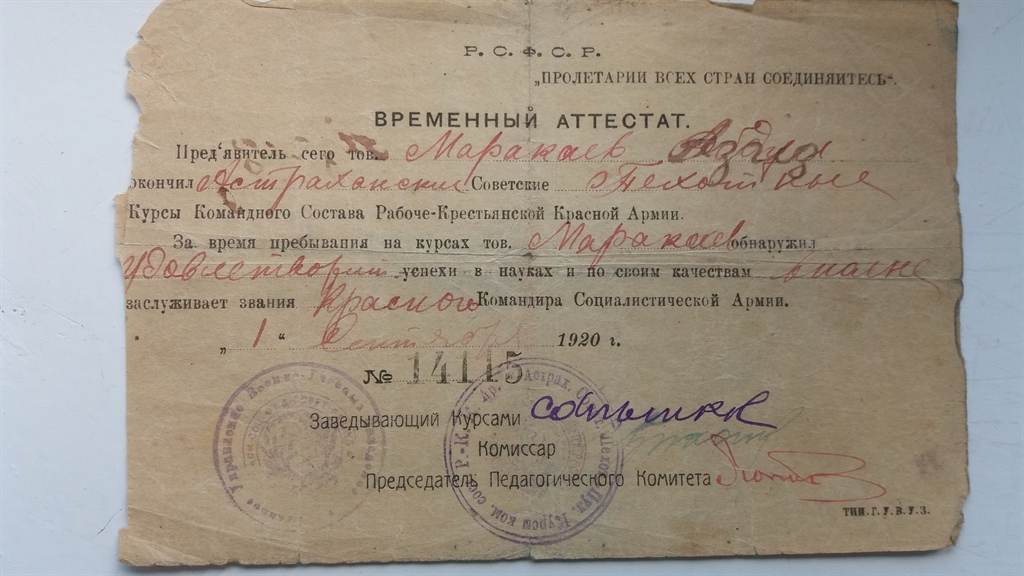 Р. С. Ф. С. Р.
„ПРОЛЕТАРИИ ВСЕХ СТРАН СОЕДИНЯЙТЕСЬ“.
ВРЕМЕННЫЙ АТТЕСТАТ.
Пред‘явитель сего тов. Маракаев
окончил Астраханские Советские Пехотные
Курсы Командного Состава Рабоче-Крестьянской Красной Армии.
За время пребывания на курсах тов. Маракаев обнаружил
удовлетворит успехи в науках и по своим качествам вполне
заслуживает звания Красного Командира Социалистической Армии.
„ 1 “ Сентября 1920 г.
№ 14115
Заведывающий Курсами
Комиссар
Председатель Педагогического Комитета
ТИП. Г. У. В. У. З.